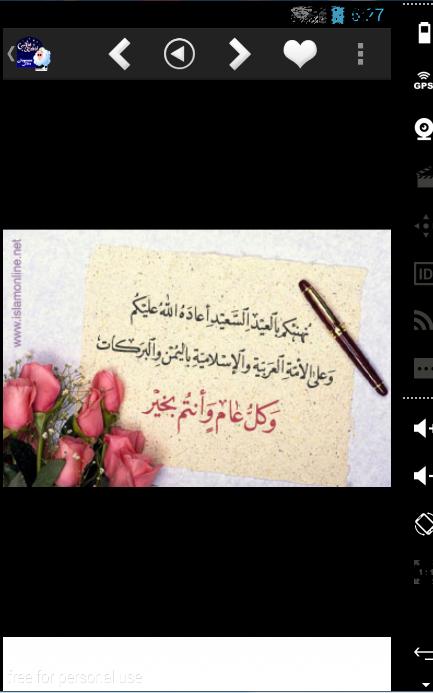 6:27
GPS
ID
www.islamonline.net
نهنئكم بالعيد السعيد أعاده الله عليكم
وعلى الأمة العربية والإسلامية باليمن والبركات
وكل عام وأنتم بخير
free for personal use